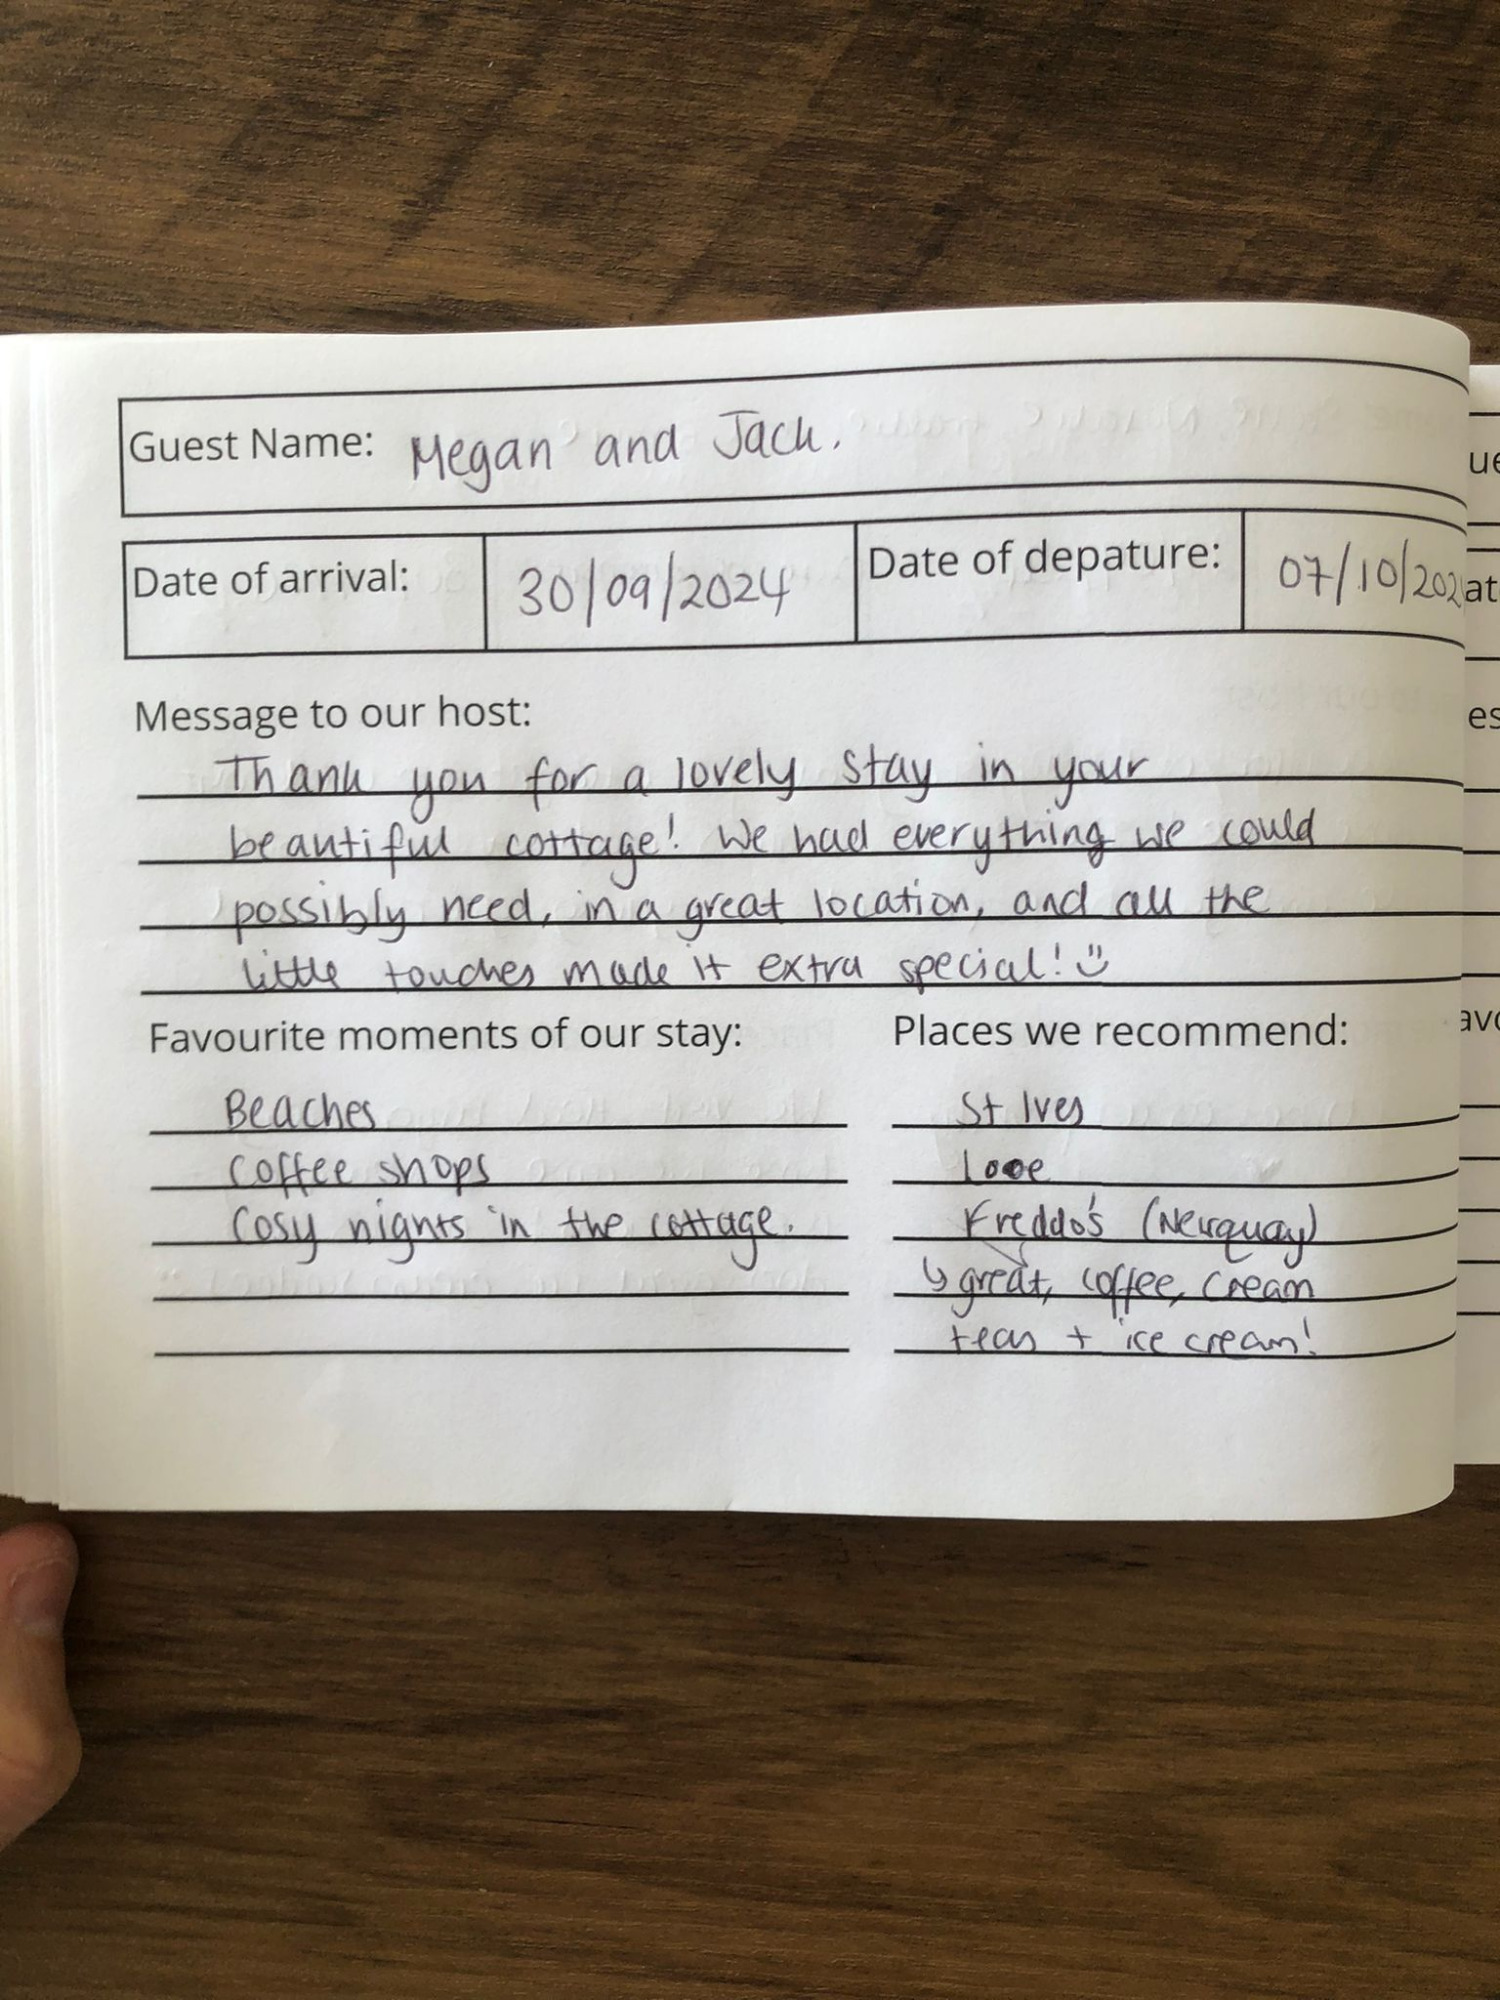 Guest Name: Megan and Jack.
Date of arrival: 30/09/2024 Date of depature: 07/10/202
Message to our host:
Thank you for a lovely stay in your
beautiful cottage! We had everything we could
possibly need, in a great location, and all the
little touches made it extra special! :)
Favourite moments of our stay:
Beaches
Coffee shops
Cosy nights in the cottage.
Places we recommend:
St Ives
Looe
Freddo's (Newquay)
↳ great, coffee, cream
teas + ice cream!
ue
at
es
avo